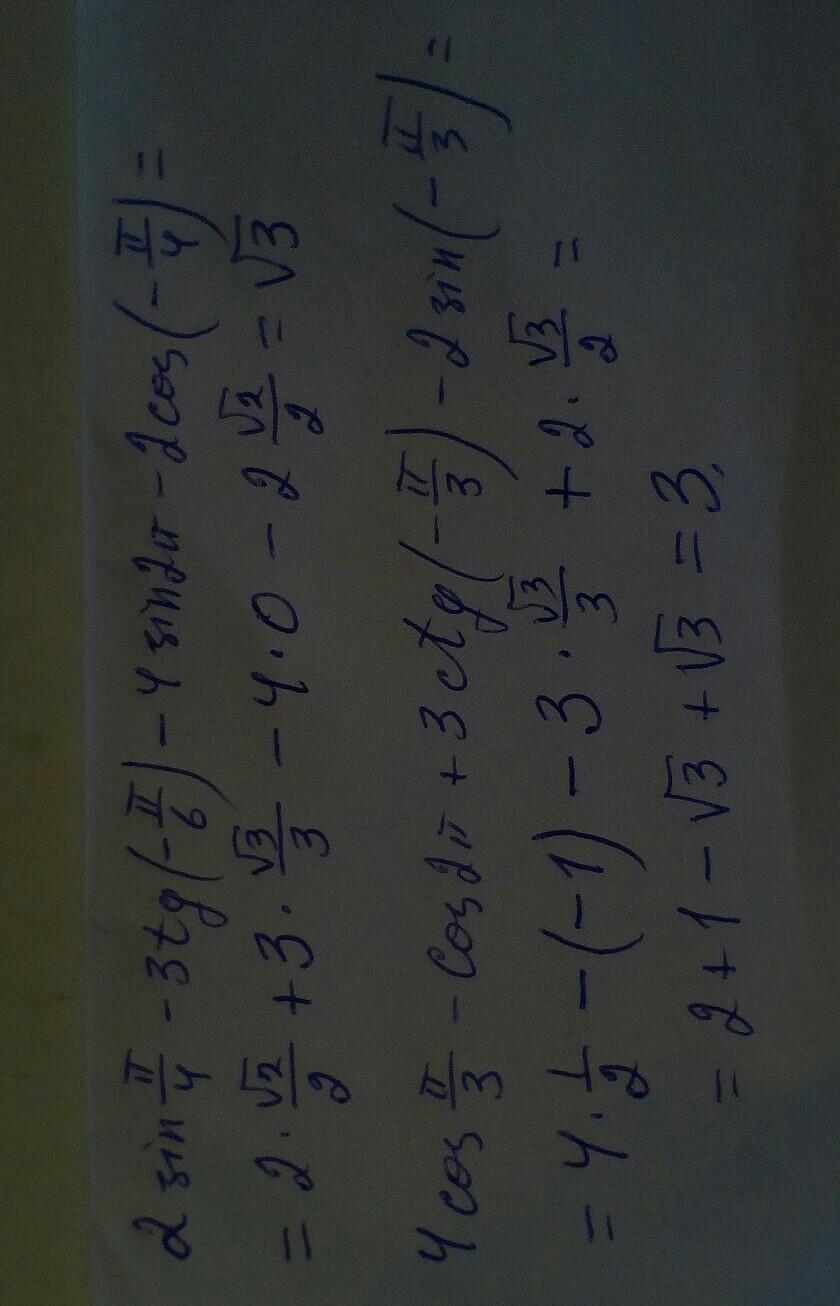 2 sin π/4 - 3tg(-π/6) - 4 sin2π - 2cos(-π/4) =
= 2·√2/2 + 3·√3/3 - 4·0 - 2 √2/2 = √3
4 cos π/3 - cos2π + 3 ctg(-π/3) - 2 sin(-π/3) =
= 4·1/2 - (-1) - 3·√3/3 + 2·√3/2 =
= 2 + 1 - √3 + √3 = 3.